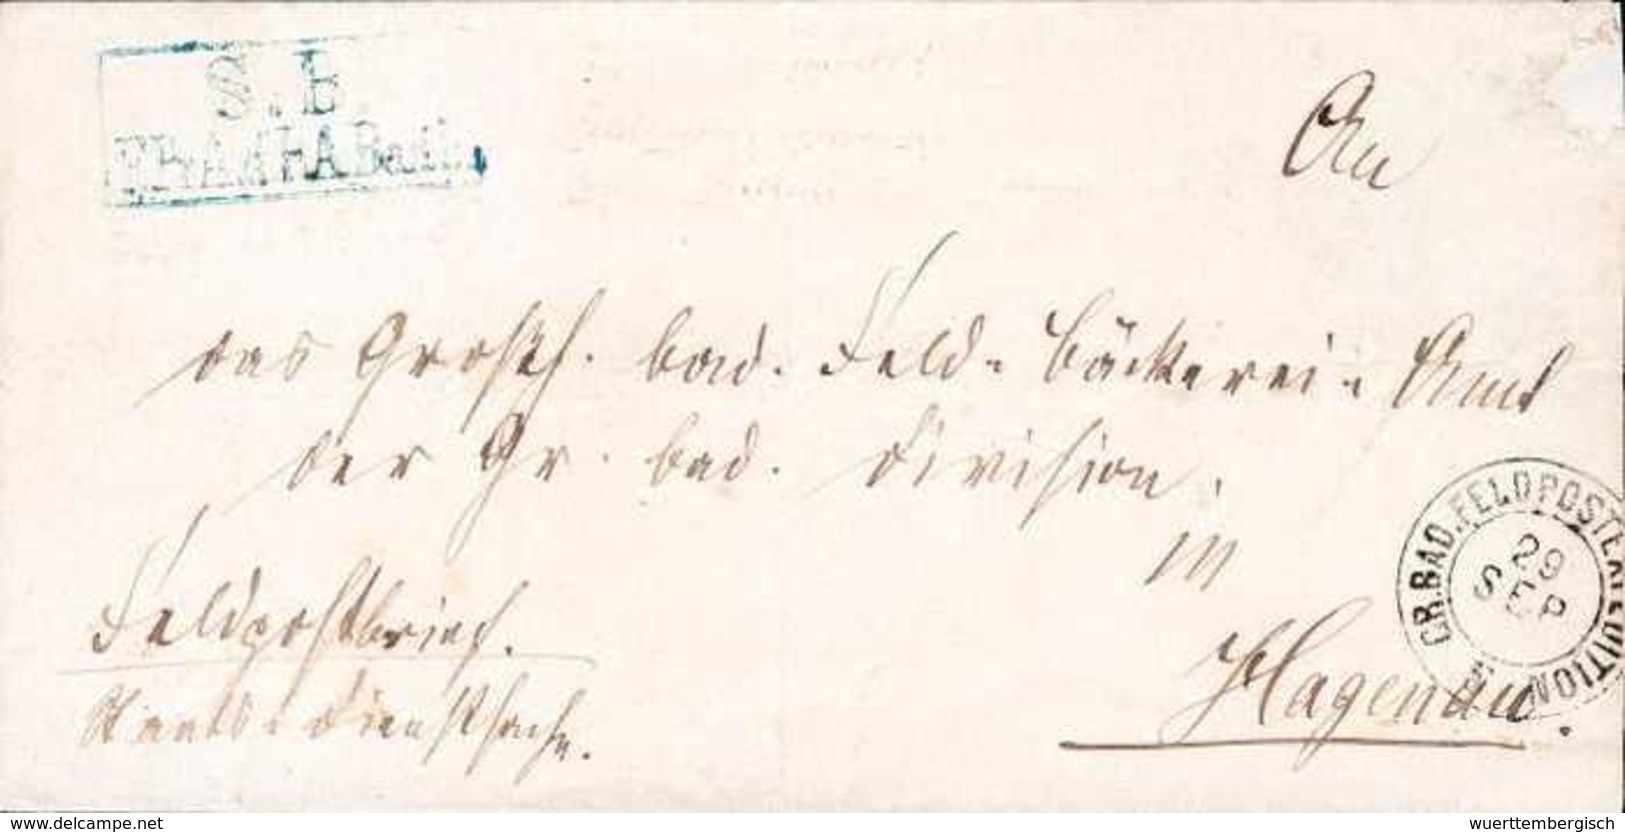 S. B.
An
das Großh. bad. Feld-Bäckerei-Amt
der Gr. bad. Division.
in
Hagenau.
Feldpostbrief.
Staats-Dienstsache.
GR.BAD.FELDPOSTEXPEDITION
29
SEP
www.delcampe.net
wuerttembergisch